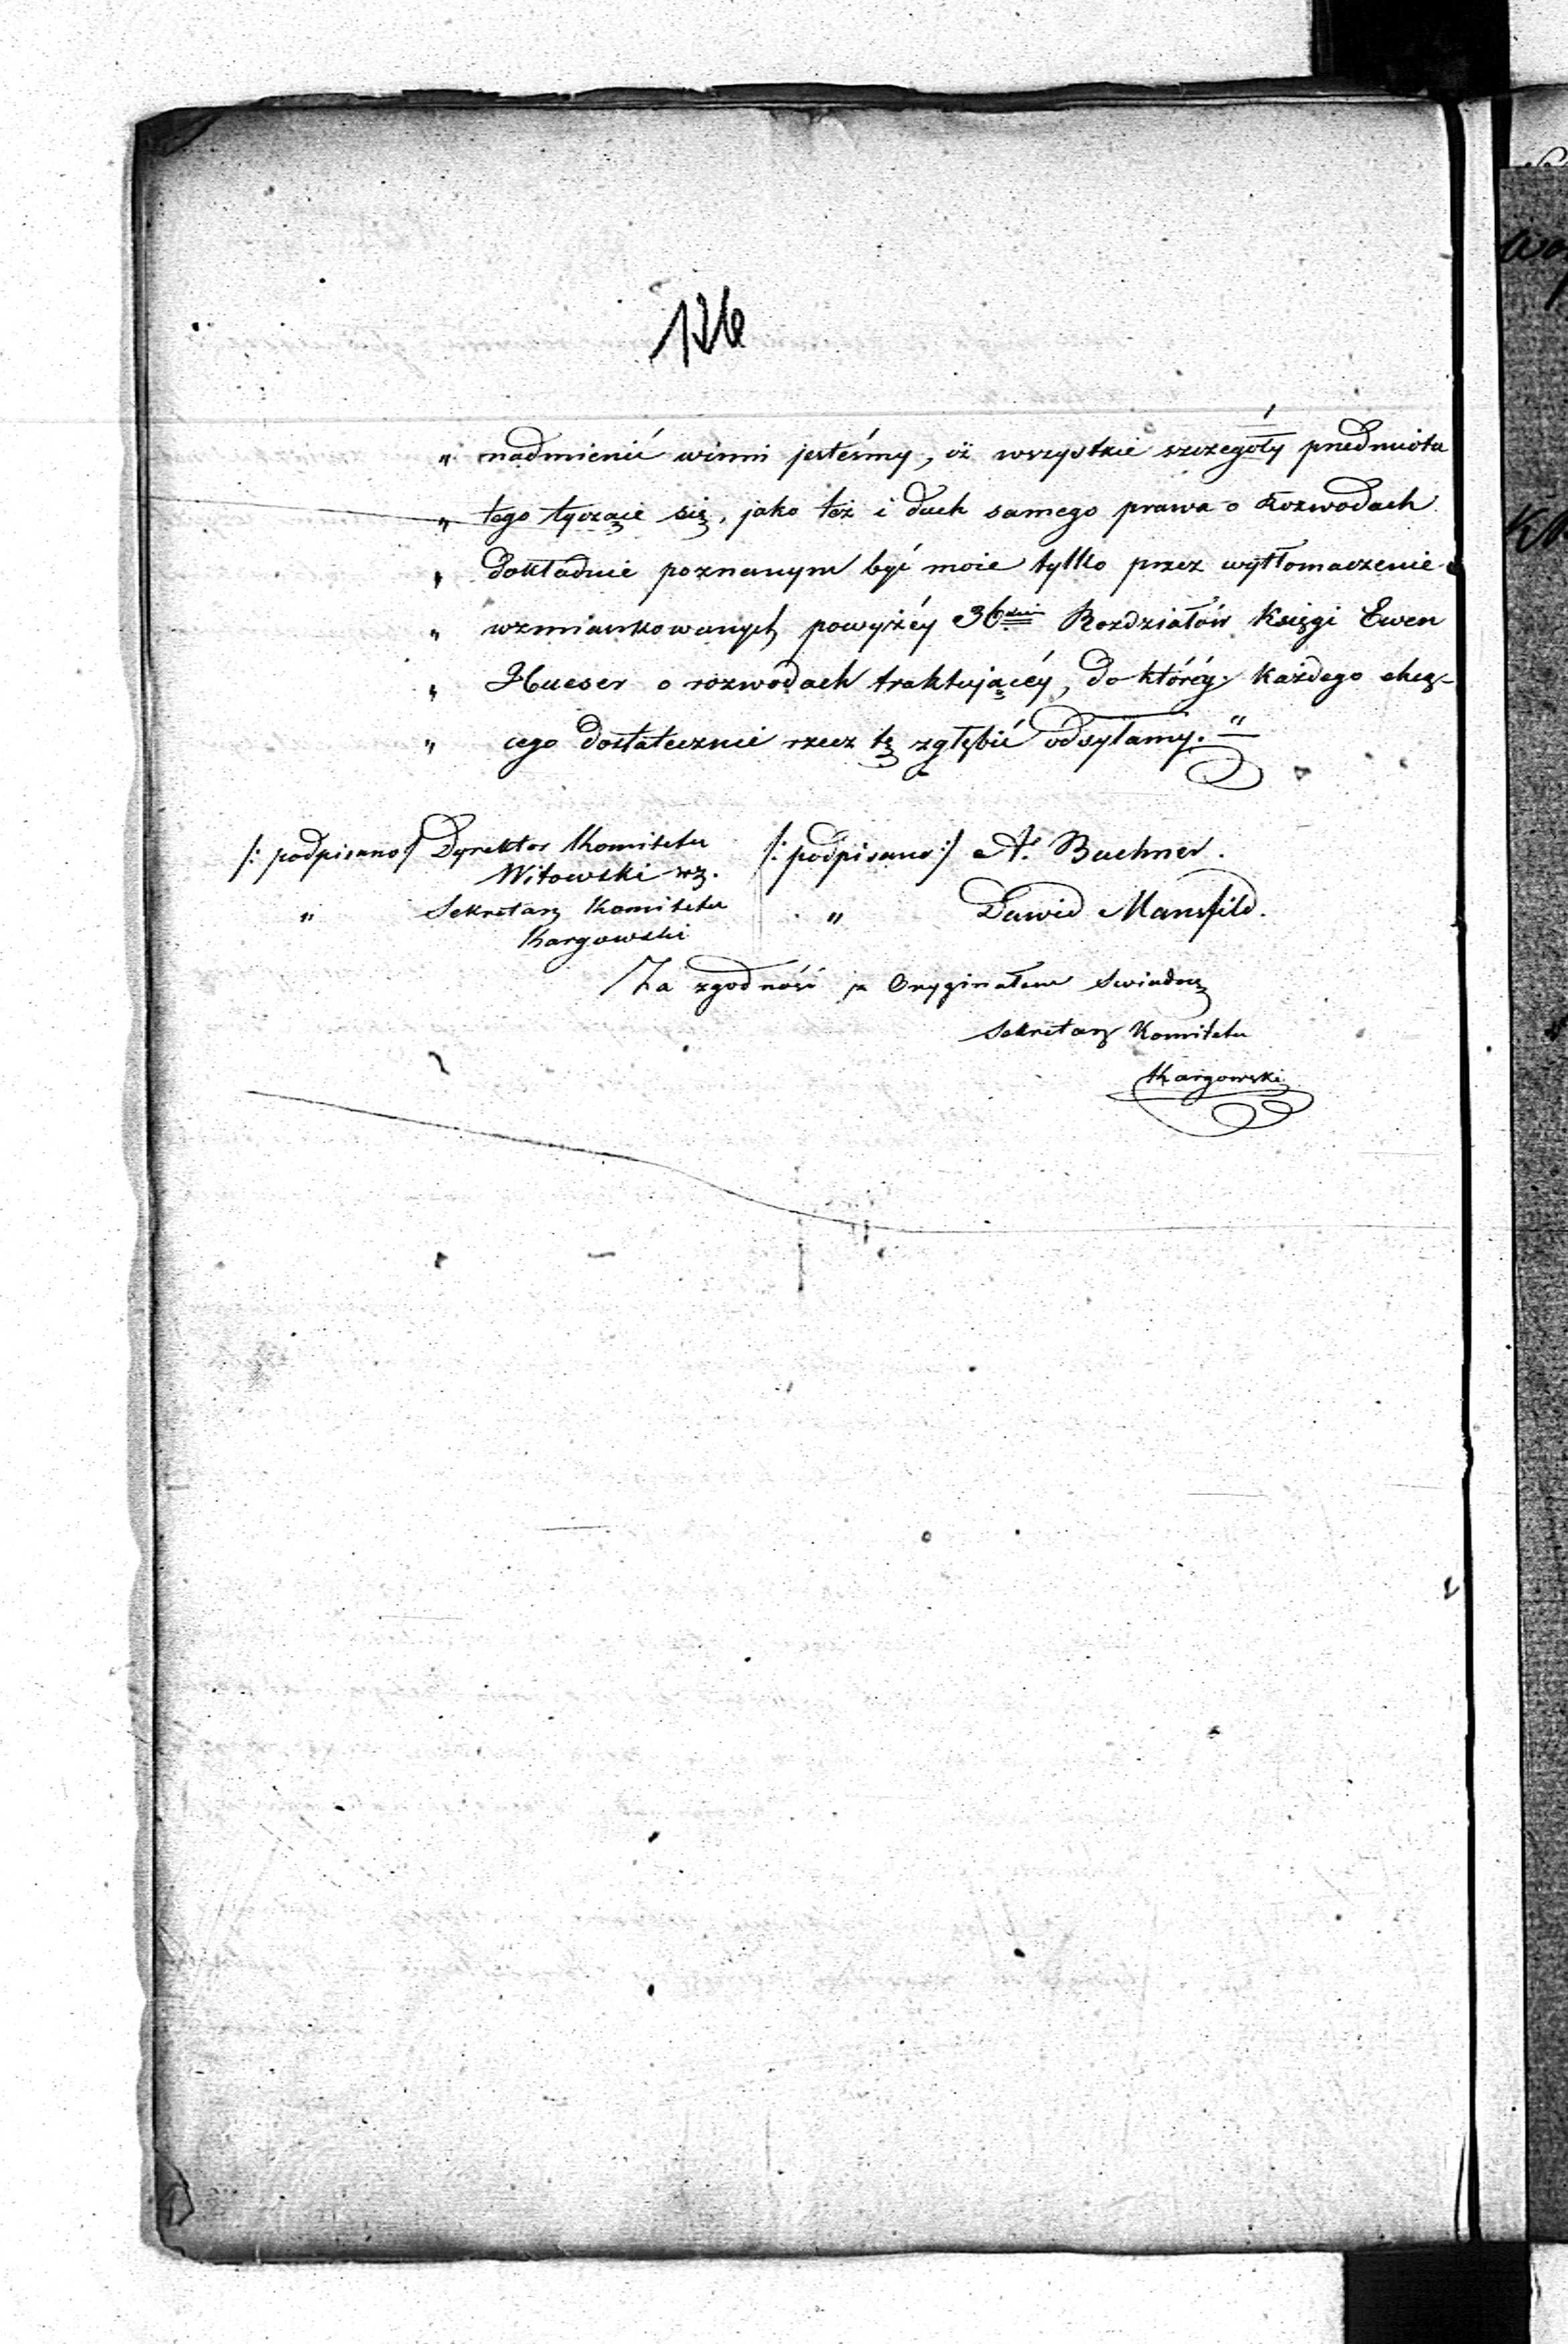 126
„ nadmienić winni jesteśmy, iż wszystkie szczegóły przedmiotu
„ tego tyczące się, jako też i duch samego prawa o Rozwodach
„ dokładnie poznanym być może tylko przez wytłomaczenie
„ wzmiankowanych powyżéy 36ciu Rozdziałów Księgi Ewen
„ Hueser o rozwodach traktującéy, do któréy każdego chcą-
„ cego dostatecznie rzecz tę zgłębić odsyłamy.“
/: podpisano :/ Dyrektor Komitetu /: podpisano :/ A. Buchner.
Witowski wz.
„ Sekretarz Komitetu „ Dawid Mansfild.
Kargowski
Za zgodność z Oryginałem Swiadczę
Sekretarz Komitetu
Kargowski